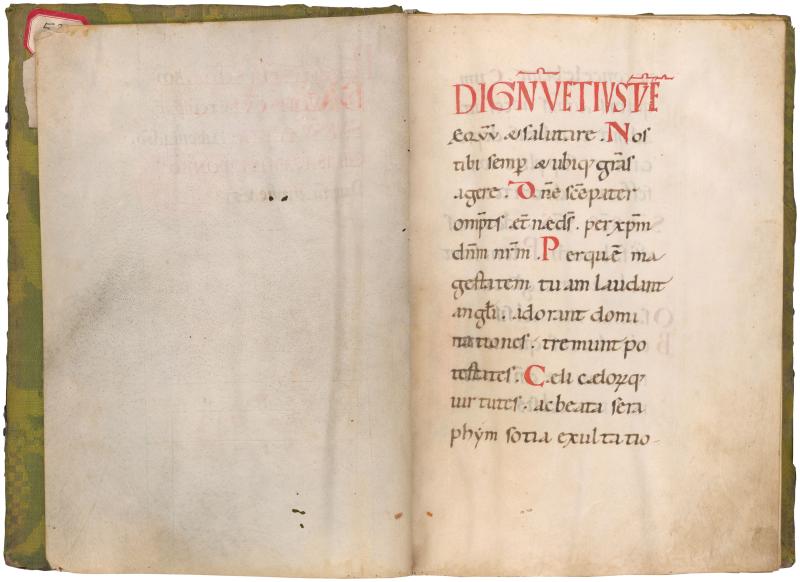 52
DIGNŪETIUSTŪE
æquū & salutare. Nos
tibi semp̄ & ubiq; gr̄as
agere. Dn̄e sc̄e pater
omp̄ts æt̄næ ds̄. per xp̄m
dn̄m nr̄m. Per quē ma
gestatem tuam laudant
angl̄i. adorant domi
nationes. tremunt po
testates. Cæli cælorꝝq;
uirtutes. ac beata sera
phẏm sotia exultatio